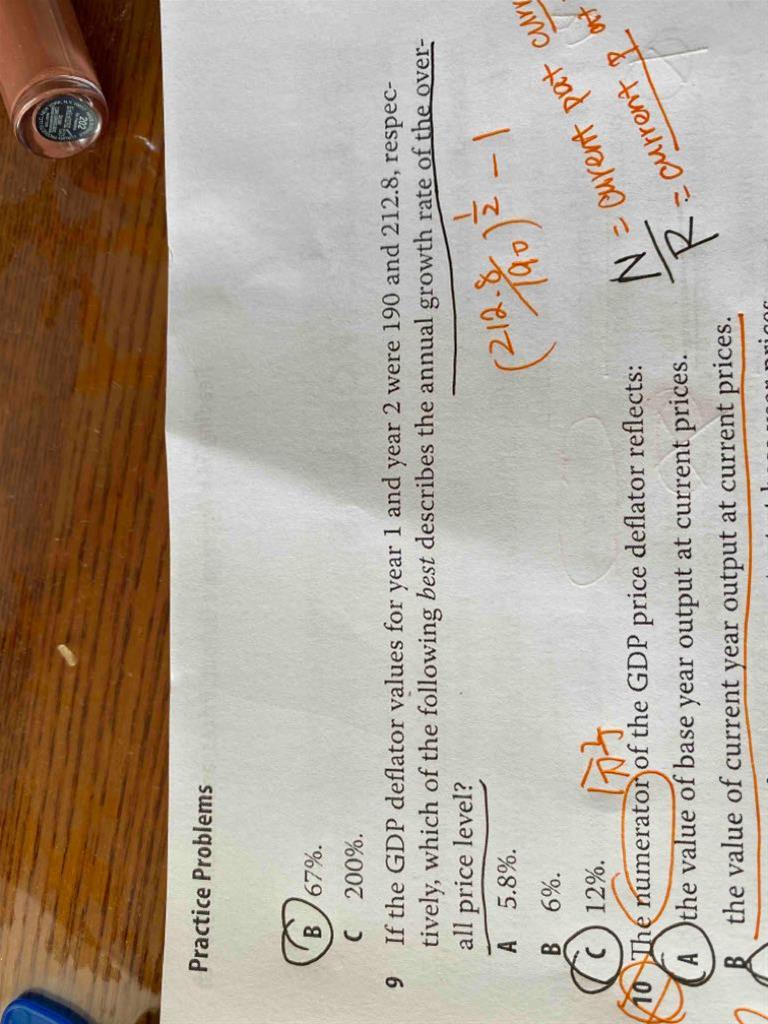 Practice Problems
B 67%.
C 200%.
9 If the GDP deflator values for year 1 and year 2 were 190 and 212.8, respec-
tively, which of the following best describes the annual growth rate of the over-
all price level?
A 5.8%.
B 6%.
C 12%.
(212.8/190)^1/2 - 1
10 The numerator of the GDP price deflator reflects:
A the value of base year output at current prices.
B the value of current year output at current prices.
N = current
R = current P
202